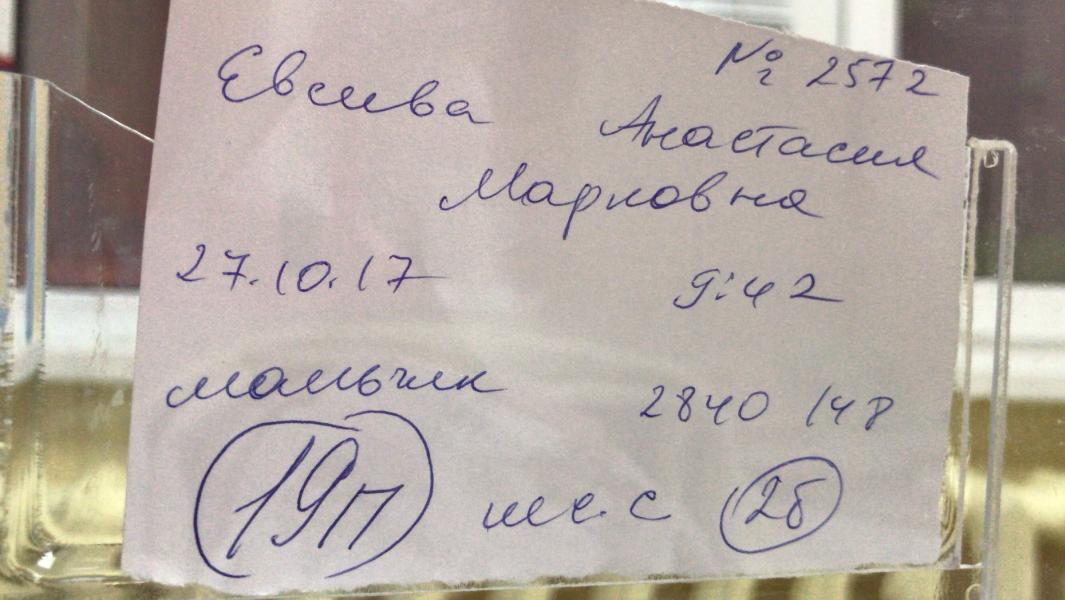 № 2572
Евсива Анастасия
Марковна
27.10.17 9:42
мальчик 2840 148
19п 2б